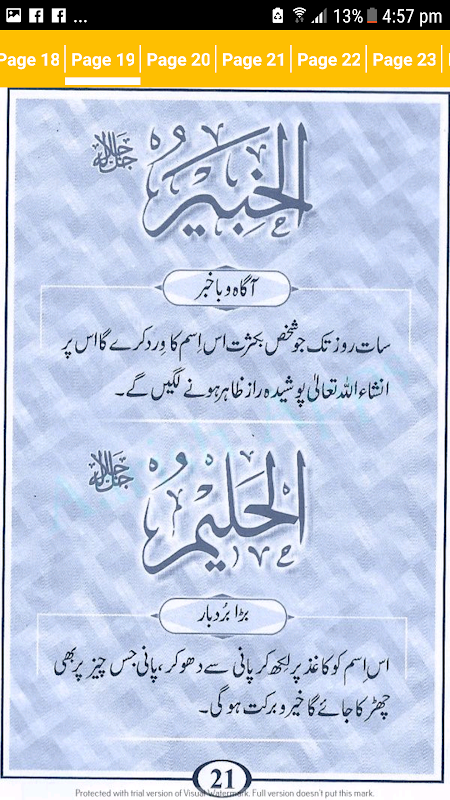 ... 13% 4:57 pm
Page 18 Page 19 Page 20 Page 21 Page 22 Page 23
الخَبِيْرُ جل جلالہ
آگاہ و باخبر
سات روز تک جو شخص بکثرت اس اِسم کا وِرد کرے گا اس پر
انشاء اللہ تعالیٰ پوشیدہ راز ظاہر ہونے لگیں گے۔
الحَلِيْمُ جل جلالہ
بڑا بُردبار
اس اسم کو کاغذ پر لکھ کر پانی سے دھو کر، پانی جس چیز پر بھی
چھڑکا جائے گا خیر و برکت ہوگی۔
21
Protected with trial version of Visual Watermark. Full version doesn't put this mark.